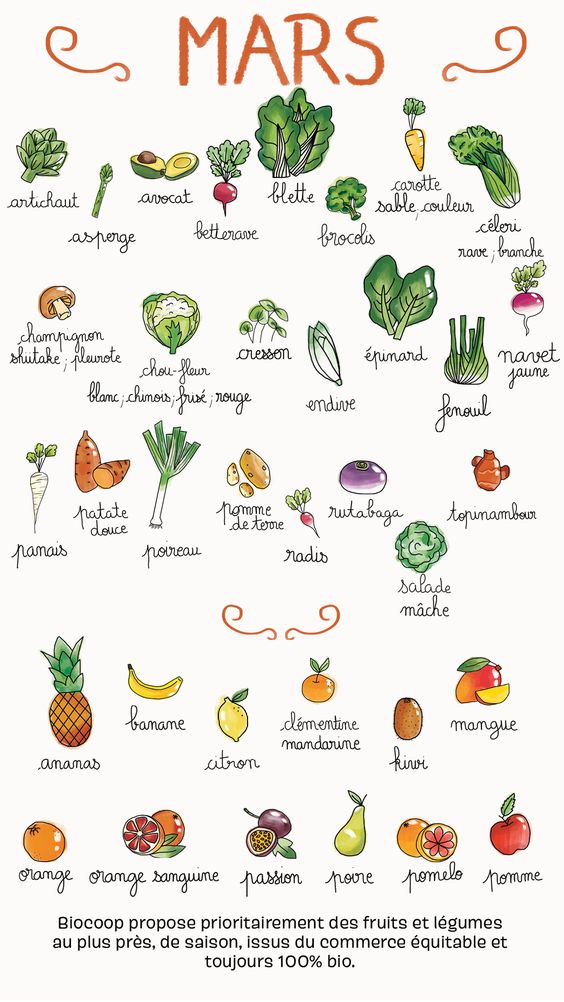 MARS
artichaut
asperge
avocat
betterave
blette
brocolis
carotte
sable, couleur
céleri
rave ; branche
champignon
shiitake ; pleurote
chou-fleur
blanc ; chinois ; frisé ; rouge
cresson
endive
épinard
fenouil
navet
jaune
panais
patate
douce
poireau
pomme
de terre
radis
rutabaga
salade
mâche
topinambour
ananas
banane
citron
clémentine
mandarine
kiwi
mangue
orange
orange sanguine
passion
poire
pomelo
pomme
Biocoop propose prioritairement des fruits et légumes
au plus près, de saison, issus du commerce équitable et
toujours 100% bio.